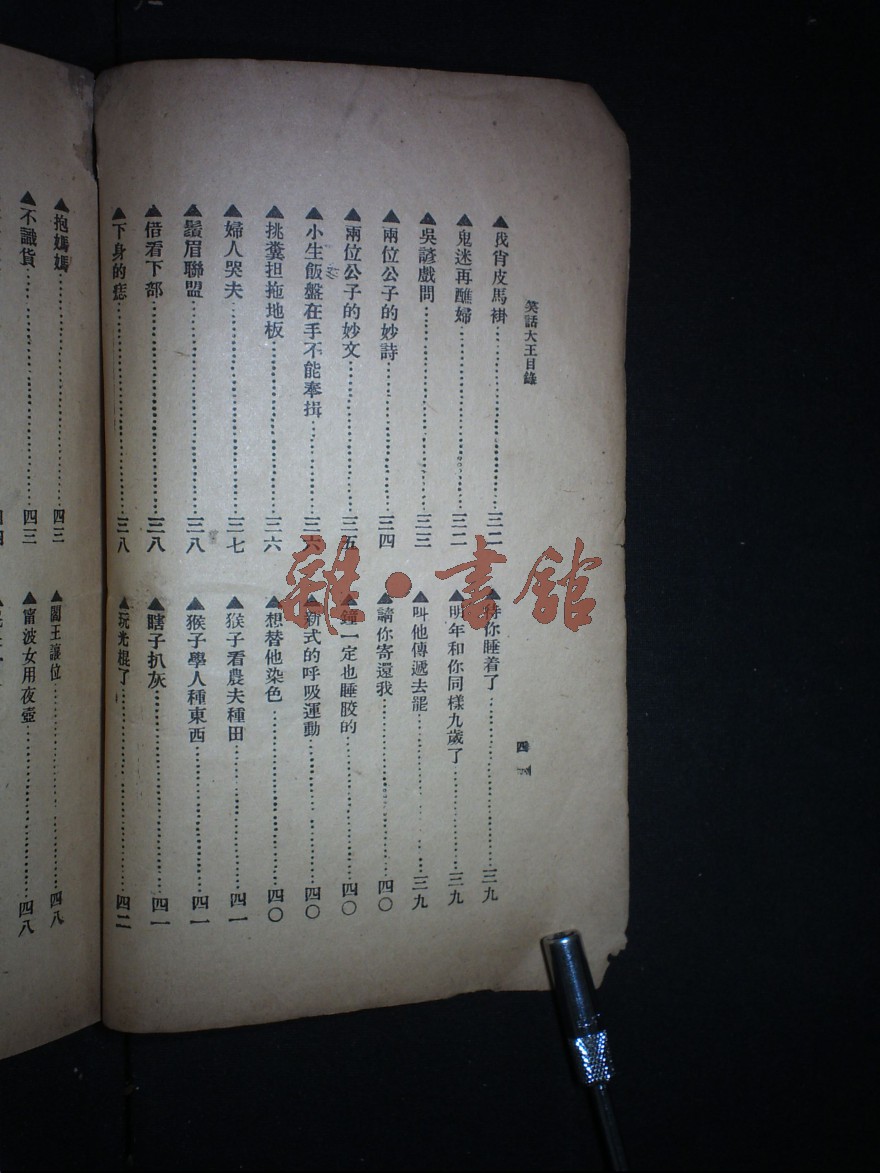 笑話大王目錄
四
▲我肯皮馬褂……三二
▲鬼迷再醮婦……三二
▲吳諺戲問……三三
▲兩位公子的妙詩……三四
▲兩位公子的妙文……三五
▲小生飯盤在手不能奉揖……三六
▲挑糞担拖地板……三六
▲婦人哭夫……三七
▲鬚眉聯盟……三八
▲借看下部……三八
▲下身的痣……三八
▲待你睡着了……三九
▲明年和你同樣九歲了……三九
▲叫他傳遞去罷……三九
▲請你寄還我……四〇
▲鐘一定也睡胶的……四〇
▲新式的呼吸運動……四〇
▲想替他染色……四〇
▲猴子看農夫種田……四一
▲猴子學人種東西……四一
▲瞎子扒灰……四一
▲玩光棍了……四二
▲抱媽媽……四三
▲不識貨……四三
▲閻王讓位……四八
▲甯波女用夜壺……四八
雜·書館